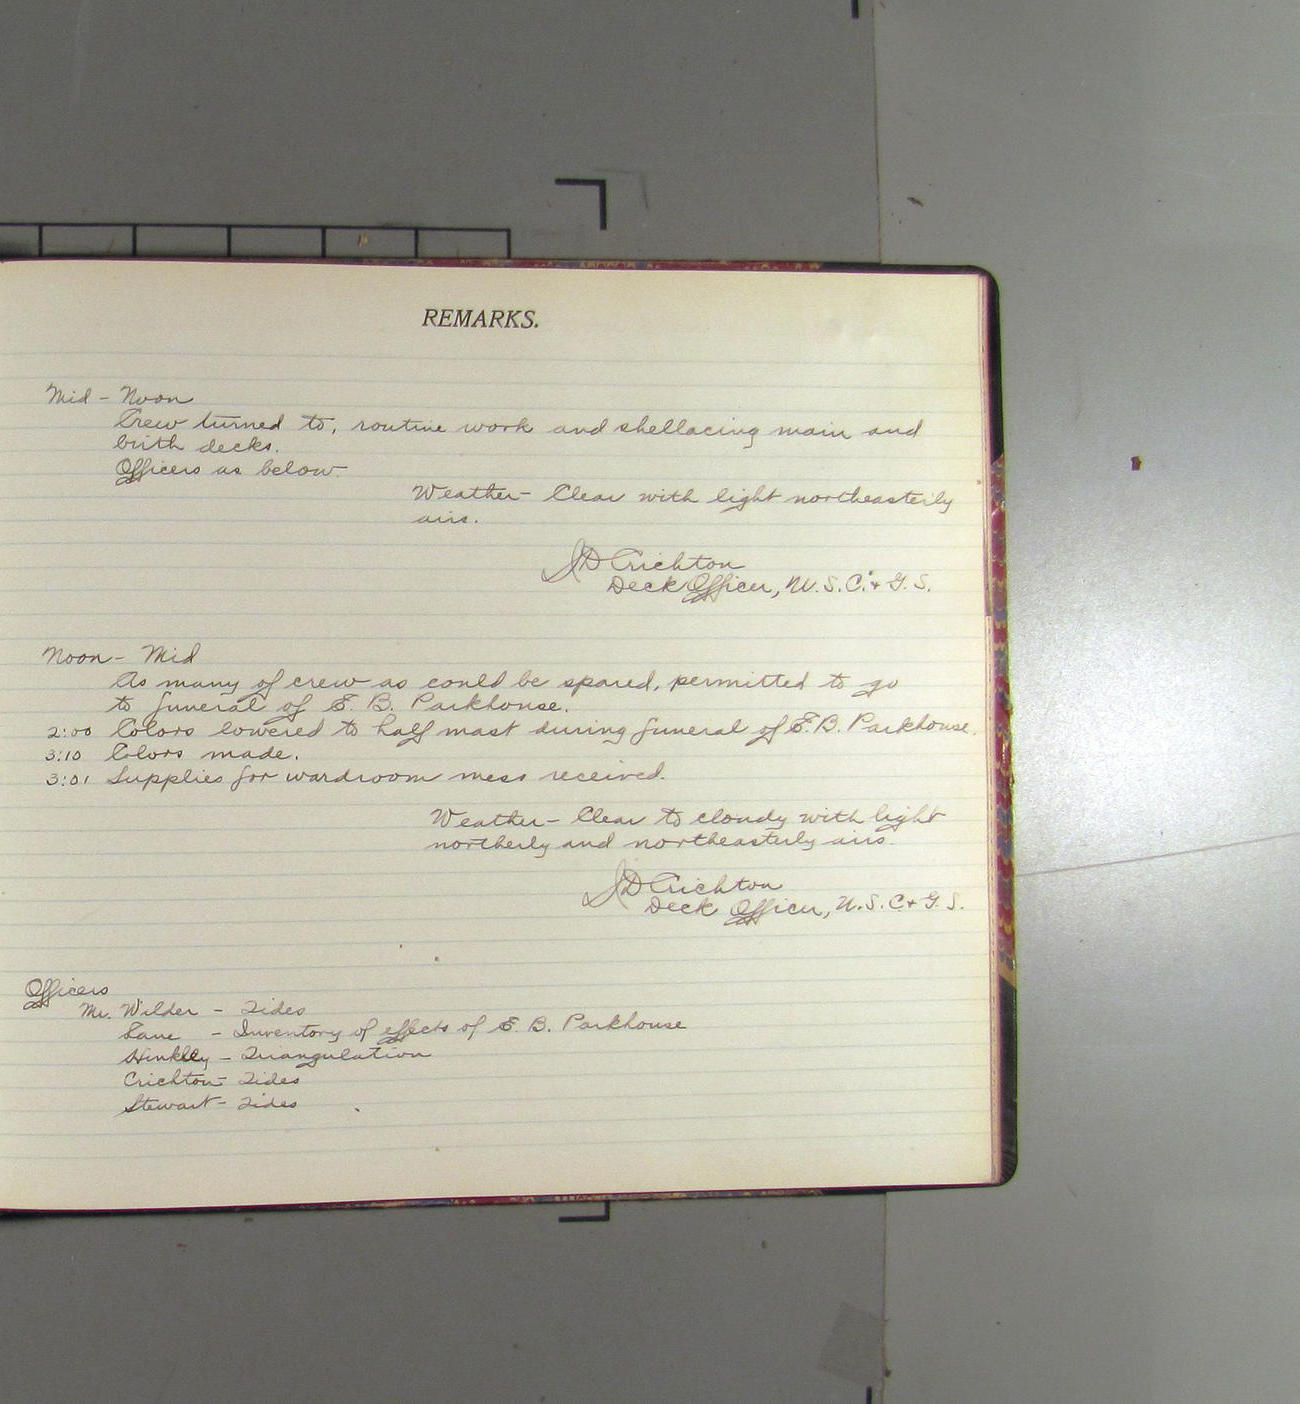 REMARKS.
Mid - Noon
Crew turned to, routine work and shellacing main and
birth decks.
Officers as below.
Weather - Clear with light northeasterly
airs.
JD Crichton
Deck Officer, U.S.C. & G.S.
Noon - Mid
As many of crew as could be spared, permitted to go
to funeral of E. B. Parkhouse.
2:00 Colors lowered to half mast during funeral of E.B. Parkhouse.
3:10 Colors made.
3:01 Supplies for wardroom mess received.
Weather - Clear to cloudy with light
northerly and northeasterly airs.
JD Crichton
Deck Officer, U.S.C. & G.S.
Officers
Mr. Wilder - Tides
Lane - Inventory of effects of E. B. Parkhouse
Hinkley - Triangulation
Crichton - Tides
Stewart - Tides